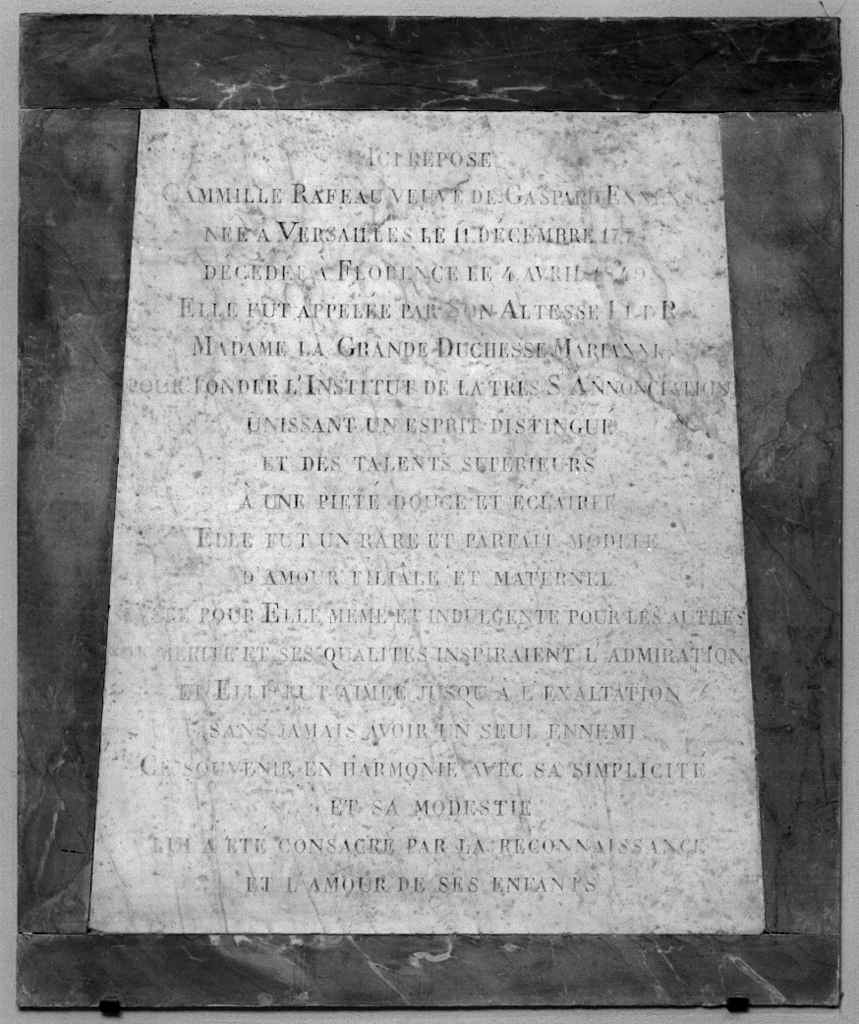 ICI REPOSE
CAMMILLE RAFEAU VEUVE DE GASPARD
NÉE À VERSAILLES LE 11 DÉCEMBRE
DÉCÉDÉE À FLORENCE LE 4 AVRIL 1849
ELLE FUT APPELÉE PAR SON ALTESSE I ET R
MADAME LA GRANDE DUCHESSE MARIANNE
POUR FONDER L'INSTITUT DE LA TRES S. ANNONCIATION
UNISSANT UN ESPRIT DISTINGUÉ
ET DES TALENTS SUPERIEURS
À UNE PIETÉ DOUCE ET ÉCLAIRÉE
ELLE FUT UN RARE ET PARFAIT MODELE
D'AMOUR FILIALE ET MATERNEL
POUR ELLE MEME ET INDULGENTE POUR LES AUTRES
MERITE ET SES QUALITÉS INSPIRAIENT L'ADMIRATION
ET ELLE FUT AIMÉE JUSQU'À L'EXALTATION
SANS JAMAIS AVOIR UN SEUL ENNEMI
CE SOUVENIR EN HARMONIE AVEC SA SIMPLICITÉ
ET SA MODESTIE
LUI A ÉTÉ CONSACRÉ PAR LA RECONNAISSANCE
ET L'AMOUR DE SES ENFANTS